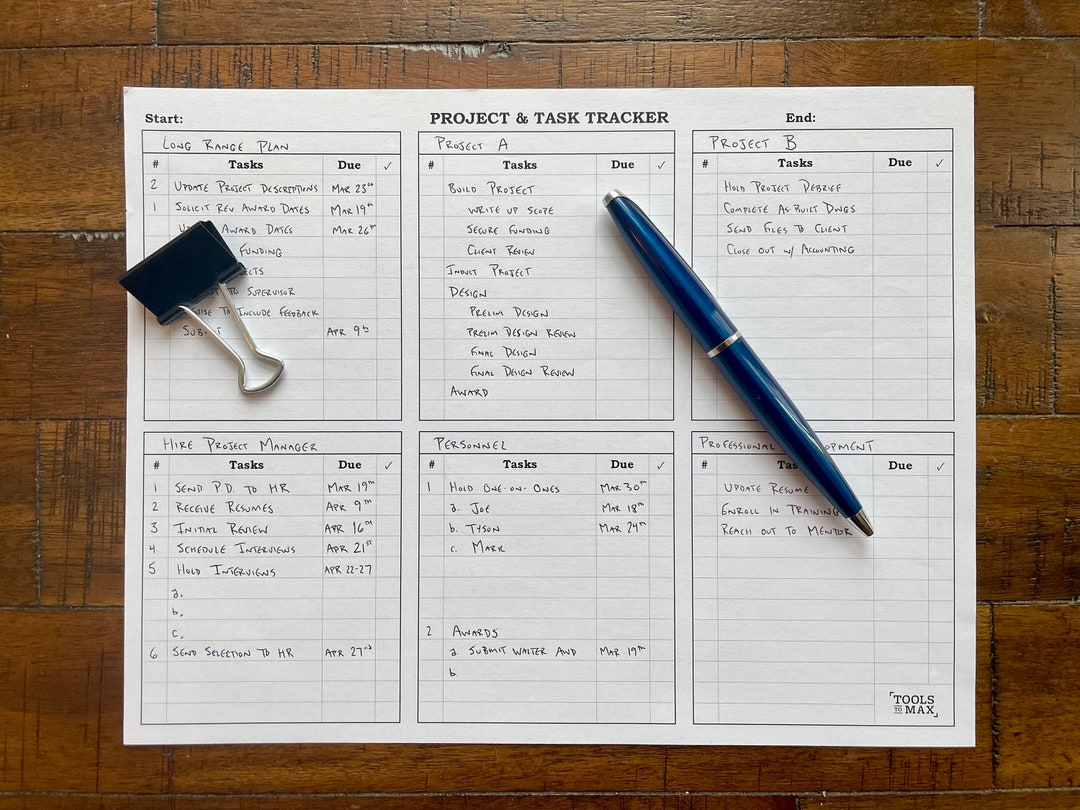 Start: PROJECT & TASK TRACKER End:
LONG RANGE PLAN
# Tasks Due ✓
2 UPDATE PROJECT DESCRIPTIONS MAR 23rd
1 SOLICIT REV AWARD DATES MAR 19th
AWARD DATES MAR 26th
FUNDING
TO SUPERVISOR
TO INCLUDE FEEDBACK
SUBMIT APR 9th
PROJECT A
# Tasks Due ✓
BUILD PROJECT
WRITE UP SCOPE
SECURE FUNDING
CLIENT REVIEW
INDUCT PROJECT
DESIGN
PRELIM DESIGN
PRELIM DESIGN REVIEW
FINAL DESIGN
FINAL DESIGN REVIEW
AWARD
PROJECT B
# Tasks Due ✓
HOLD PROJECT DEBRIEF
COMPLETE AS BUILT DWGS
SEND FILES TO CLIENT
CLOSE OUT W/ ACCOUNTING
HIRE PROJECT MANAGER
# Tasks Due ✓
1 SEND P.D. TO HR MAR 19TH
2 RECEIVE RESUMES APR 9TH
3 INITIAL REVIEW APR 16TH
4 SCHEDULE INTERVIEWS APR 21ST
5 HOLD INTERVIEWS APR 22-27
a.
b.
c.
6 SEND SELECTION TO HR APR 27nd
PERSONNEL
# Tasks Due ✓
1 HOLD ONE-ON-ONES MAR 30th
a. JOE MAR 18th
b. TYSON MAR 24th
c. MARK
2 AWARDS
a SUBMIT WALTER AWD MAR 19th
b.
PROFESSIONAL
# Due ✓
UPDATE RESUME
ENROLL IN TRAINING
REACH OUT TO MENTOR
TOOLS
TO MAX